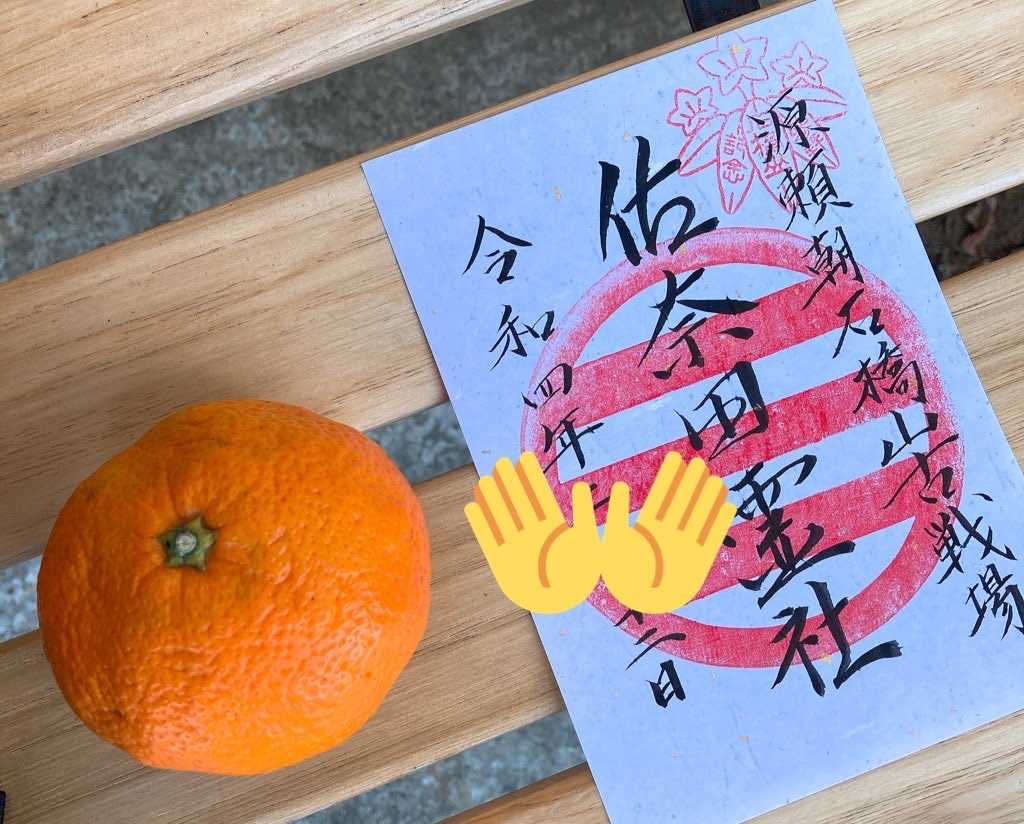 源頼朝石橋山古戦場
佐奈田霊社
令和四年
二日
記念